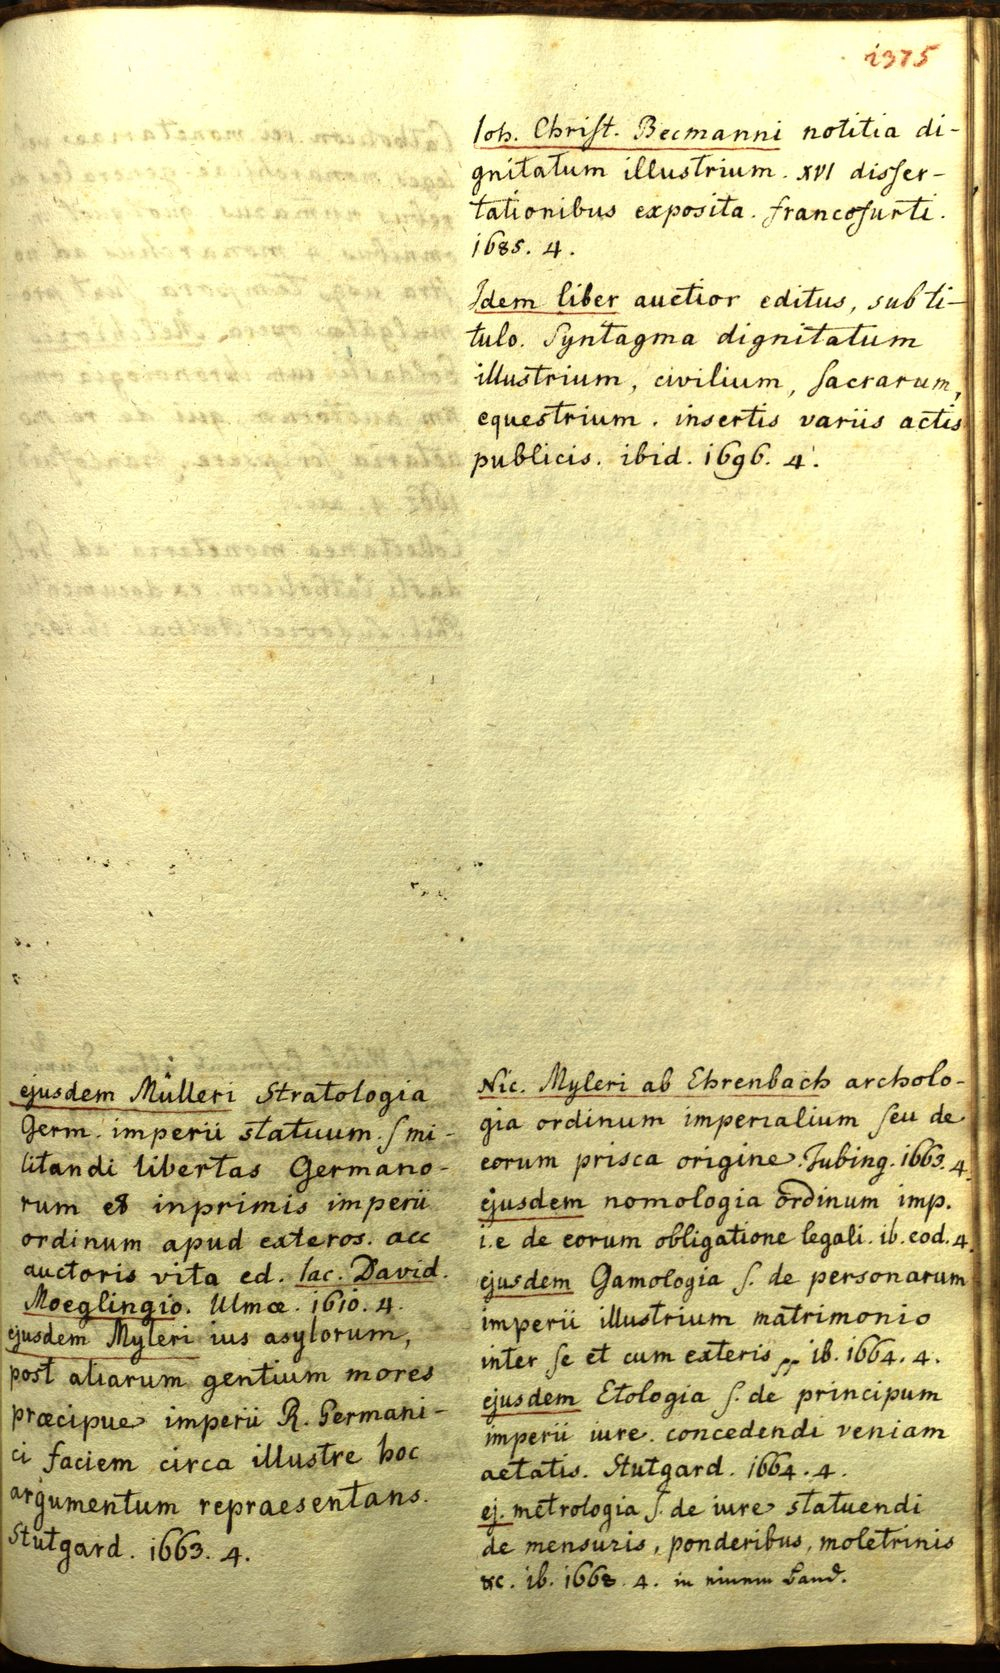 1375
Ioh. Christ. Becmanni notitia di-
gnitatum illustrium. XVI disser-
tationibus exposita. francofurti.
1685. 4.
Idem liber auctior editus, sub ti-
tulo. Syntagma dignitatum
illustrium, civilium, sacrarum,
equestrium. insertis variis actis
publicis. ibid. 1696. 4.
ejusdem Mülleri Stratologia
Germ. imperii statuum. s mi-
litandi libertas Germano-
rum et inprimis imperii
ordinum apud exteros. acc
auctoris vita ed. Iac. David.
Moeglingio. Ulmæ. 1610. 4.
ejusdem Myleri ius asylorum,
post aliarum gentium mores
præcipue imperii R. Germani-
ci faciem circa illustre hoc
argumentum repraesentans.
Stutgard. 1663. 4.
Nic. Myleri ab Ehrenbach archolo-
gia ordinum imperialium seu de
eorum prisca origine. Tubing. 1663. 4.
ejusdem nomologia ordinum imp.
i.e de eorum obligatione legali. ib. eod. 4.
ejusdem Gamologia s. de personarum
imperii illustrium matrimonio
inter se et cum exteris ib. 1664. 4.
ejusdem Etologia s. de principum
imperii iure. concedendi veniam
aetatis. Stutgard. 1664. 4.
ej. metrologia s. de iure statuendi
de mensuris, ponderibus, moletrinis
&c. ib. 1668. 4. in einem Band.